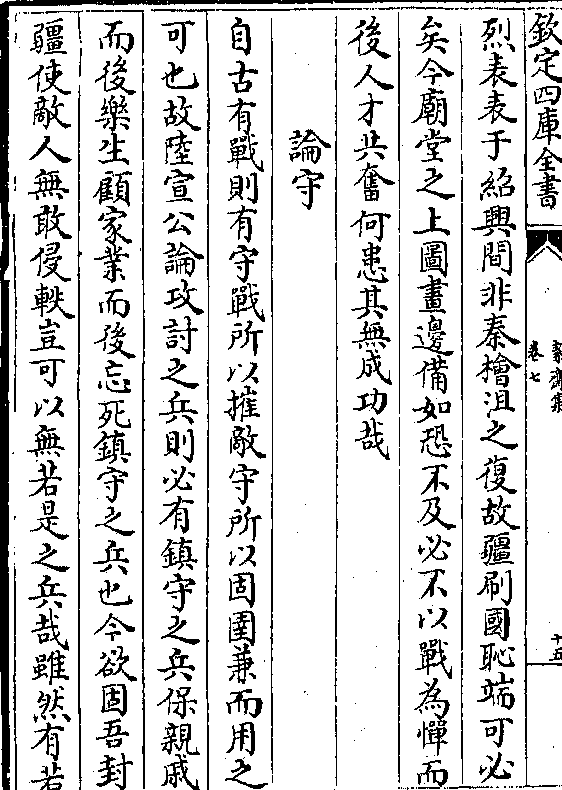 欽定四庫全書
絜齋集
卷七
十五
烈表表于紹興間非秦檜沮之復故疆刷國恥端可必
矣今廟堂之上圖畫邊備如恐不及必不以戰為憚而
後人才共奮何患其無成功哉
論守
自古有戰則有守戰所以摧敵守所以固圉兼而用之
可也故陸宣公論攻討之兵則必有鎮守之兵保親戚
而後樂生顧家業而後忘死鎮守之兵也今欲固吾封
疆使敵人無敢侵軼豈可以無若是之兵哉雖然有若